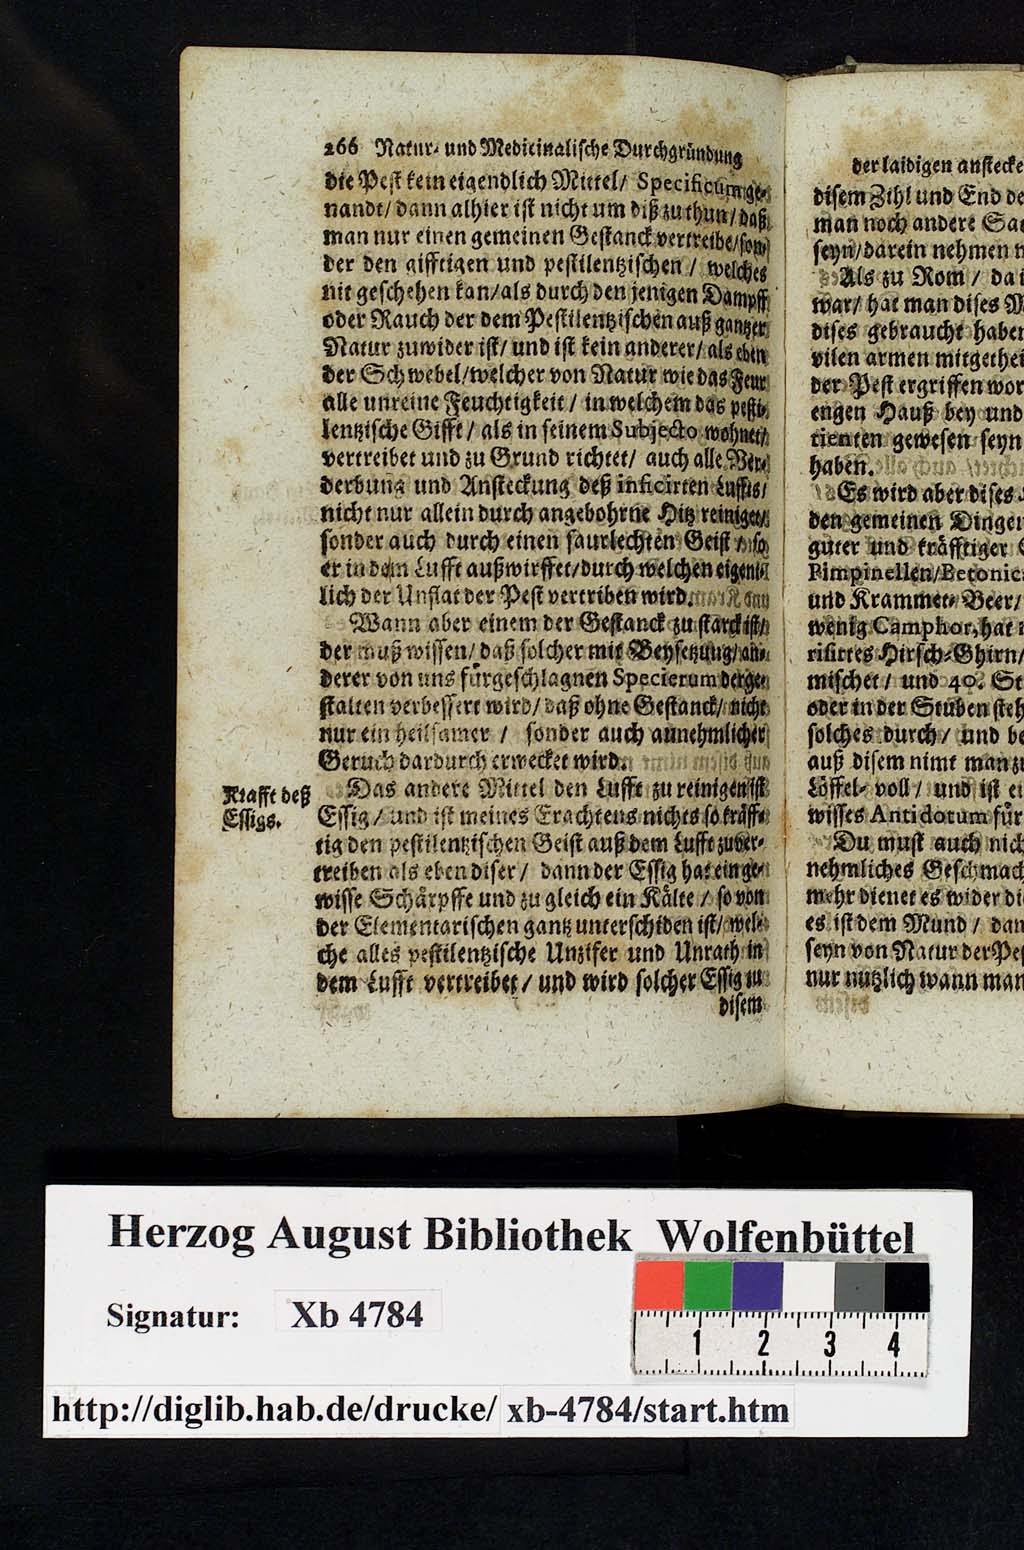 266 Natur- und Medicinalische Durchgründung
die Pest kein eigendlich Mittel/ Specificum ge-
nandt/ dann alhier ist nicht um diß zu thun/ daß
man nur einen gemeinen Gestanck vertreibe/ son-
der den gifftigen und pestilentzischen / welches
nit geschehen kan/ als durch den jenigen Dampff
oder Rauch der dem Pestilentzischen auß gantzer
Natur zuwider ist/ und ist kein anderer/ als eben
der Schwebel/ welcher von Natur wie das Feur
alle unreine Feuchtigkeit / in welchem das pesti-
lentzische Gifft / als in seinem Subjecto wohnet/
vertreibet und zu Grund richtet/ auch alle Ver-
derbung und Ansteckung deß inficirten Luffts/
nicht nur allein durch angebohrne Hitz reiniget/
sonder auch durch einen saurlechten Geist / so
er in dem Lufft außwirffet/ durch welchen eigent-
lich der Unflat der Pest vertriben wird.
Wann aber einem der Gestanck zu starck ist/
der muß wissen/ daß solcher mit Beysetzung/ an-
derer von uns fürgeschlagnen Specierum derge-
stalten verbessert wird/ daß ohne Gestanck/ nicht
nur ein heilsamer / sonder auch annehmlicher
Geruch dardurch erwecket wird.
Krafft deß
Essigs.
Das andere Mittel den Lufft zu reinigen ist
Essig / und ist meines Erachtens nichts so kräff-
tig den pestilentzischen Geist auß dem Lufft zuver-
treiben als eben diser / dann der Essig hat ein ge-
wisse Schärpffe und zu gleich ein Kälte / so von
der Elementarischen gantz unterschiden ist/ wel-
che alles pestilentzische Unzifer und Unrath in
dem Lufft vertreibet / und wird solcher Essig zu
disem
der laidigen anstecke
disem Zihl und End de
man noch andere Sac
seyn/ darein nehmen
Als zu Rom / da i
war/ hat man dises M
dises gebraucht haben
vilen armen mitgethei
der Pest ergriffen wor
engen Hauß bey und
tienten gewesen seyn
haben.
Es wird aber dises
den gemeinen Dingen
guter und kräfftiger
Pimpinellen/ Betonic
und Krammet-Beer/
wenig Camphor, hat
rifirtes Hirsch-Ghirn/
mischet / und 40. St
oder in der Stuben steh
solches durch/ und be
auß disem nimt man zu
Löffel-voll / und ist ei
wisses Antidotum für
Du must auch nich
nehmliches Geschmach
mehr dienet es wider di
es ist dem Mund / dan
seyn von Natur der Pes
nur nutzlich wann man
Herzog August Bibliothek Wolfenbüttel
Signatur: Xb 4784
1 2 3 4
http://diglib.hab.de/drucke/ xb-4784/start.htm